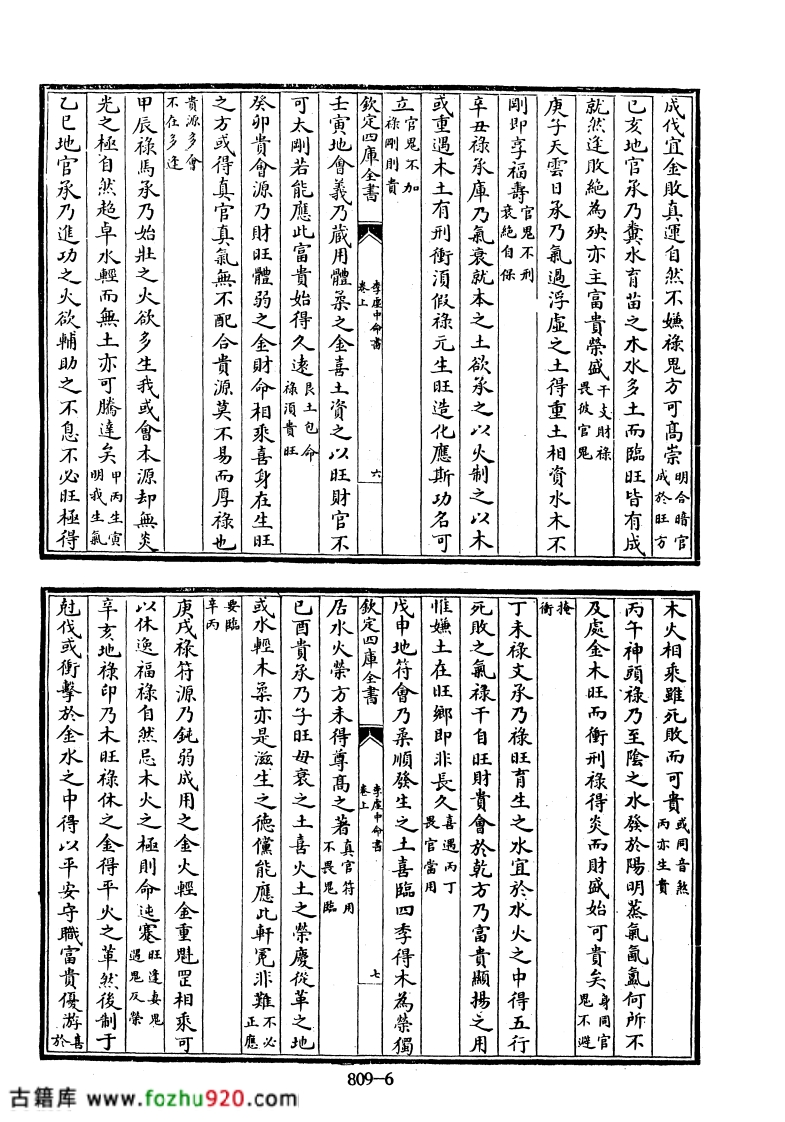 成伐宜金敗真運自然不嫌祿鬼方可髙崇明合暗官成於旺方
己亥地官承乃糞水育苗之木水多土而臨旺皆有成
就然逢敗絶為殃亦主富貴榮盛干支財祿畏彼官鬼
庚子天雲日承乃氣過浮虚之土得重土相資水木不
剛即享福壽官鬼不刑衰絶自保
辛丑祿承庫乃氣衰就本之土欲承之以火制之以木
或重遇木土有刑衝湏假祿元生旺造化應斯功名可
立官鬼不加祿剛則貴
欽定四庫全書
李虚中命書
卷上
六
壬寅地會義乃蔵用體柔之金喜土資之以旺財官不
可太剛若能應此富貴始得久逺艮土包命祿湏貴旺
癸卯貴會源乃財旺體弱之金財命相乘喜身在生旺
之方或得真官真氣無不配合貴源莫不易而厚祿也
貴源多會不在多逢
甲辰祿馬承乃始壯之火欲多生我或會本源却無炎
光之極自然超卓水輕而無土亦可騰達矣甲丙生寅明我生氣
乙巳地官承乃進功之火欲輔助之不息不必旺極得
木火相乘雖死敗而可貴或同音煞丙亦生貴
丙午神頭祿乃至陰之水發於陽明蒸氣氤氲何所不
及處金木旺而衝刑祿得炎而財盛始可貴矣身同官鬼不避
掩衝
丁未祿文承乃祿旺育生之水宜於水火之中得五行
死敗之氣祿干自旺財貴會於乾方乃富貴顯揚之用
惟嫌土在旺鄉即非長久喜遇丙丁畏官當用
戊申地符會乃柔順發生之土喜臨四季得木為榮獨
欽定四庫全書
李虚中命書
卷上
七
居水火榮方未得尊髙之著真官符用不畏鬼臨
己酉貴承乃子旺母衰之土喜火土之榮慶從革之地
或水輕木柔亦是滋生之德儻能應此軒冕非難不必正應
要臨辛丙
庚戌祿符源乃鈍弱成用之金火輕金重魁罡相乘可
以休逸福祿自然忌木火之極則命迍蹇旺逢妻鬼遇鬼反榮
辛亥地祿印乃木旺祿休之金得平火之革然後制于
尅伐或衝擊於金水之中得以平安守職富貴優游喜於
809-6
古籍库 www.fozhu920.com